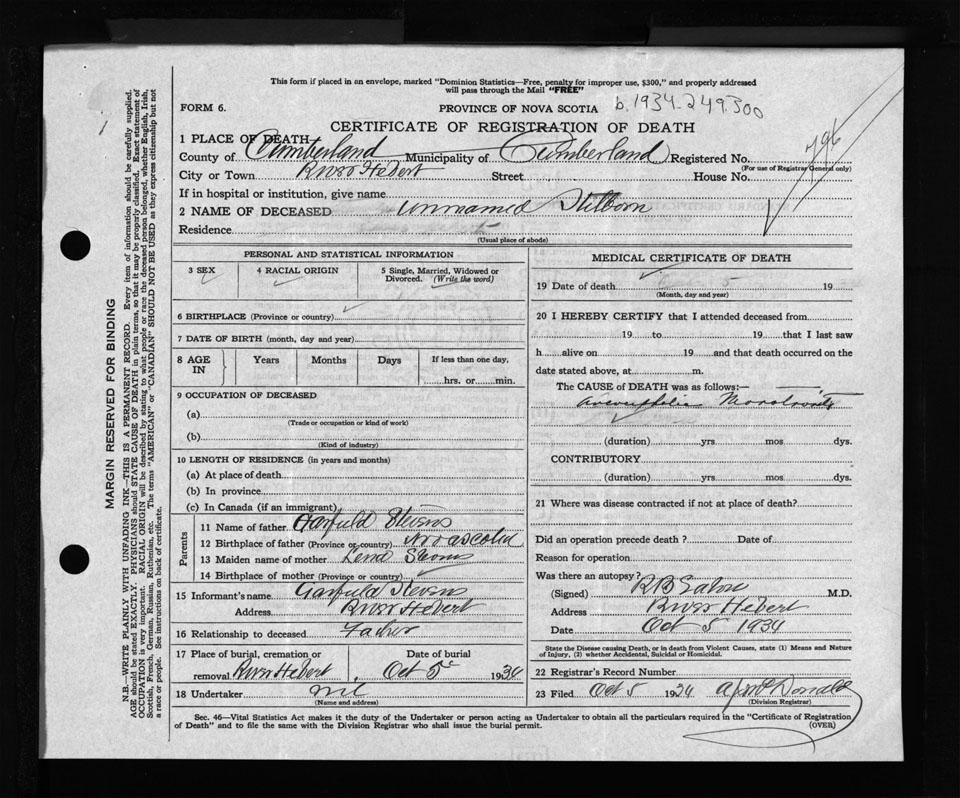 This form if placed in an envelope, marked "Dominion Statistics—Free, penalty for improper use, $300," and properly addressed
will pass through the Mail "FREE"
FORM 6.
PROVINCE OF NOVA SCOTIA
b. 1934-249.300
CERTIFICATE OF REGISTRATION OF DEATH
1 PLACE OF DEATH
County of Cumberland Municipality of Cumberland Registered No.
796
(For use of Registrar General only)
City or Town River Hebert Street House No.
If in hospital or institution, give name
2 NAME OF DECEASED unnamed Stillborn
Residence
(Usual place of abode)
PERSONAL AND STATISTICAL INFORMATION
3 SEX 4 RACIAL ORIGIN 5 Single, Married, Widowed or
Divorced. (Write the word)
6 BIRTHPLACE (Province or country)
7 DATE OF BIRTH (month, day and year)
8 AGE IN Years Months Days If less than one day,
hrs. or min.
9 OCCUPATION OF DECEASED
(a)
(Trade or occupation or kind of work)
(b)
(Kind of industry)
10 LENGTH OF RESIDENCE (in years and months)
(a) At place of death
(b) In province
(c) In Canada (if an immigrant)
Parents
11 Name of father Garfield Stevens
12 Birthplace of father (Province or country) Nova Scotia
13 Maiden name of mother Lena
14 Birthplace of mother (Province or country)
15 Informant's name Garfield Stevens
Address River Hebert
16 Relationship to deceased Father
17 Place of burial, cremation or Date of burial
removal River Hebert Oct 5 1934
18 Undertaker nil
(Name and address)
MEDICAL CERTIFICATE OF DEATH
19 Date of death 5 19
(Month, day and year)
20 I HEREBY CERTIFY that I attended deceased from
19 to 19 that I last saw
h alive on 19 and that death occurred on the
date stated above, at m.
The CAUSE of DEATH was as follows:—
(duration) yrs mos dys.
CONTRIBUTORY
(duration) yrs mos dys.
21 Where was disease contracted if not at place of death?
Did an operation precede death? Date of
Reason for operation
Was there an autopsy?
(Signed) M.D.
Address River Hebert
Date Oct 5 1934
State the Disease causing Death, or in death from Violent Causes, state (1) Means and Nature
of Injury, (2) whether Accidental, Suicidal or Homicidal.
22 Registrar's Record Number
23 Filed Oct 5 1934 McDonald
(Division Registrar)
Sec. 46—Vital Statistics Act makes it the duty of the Undertaker or person acting as Undertaker to obtain all the particulars required in the "Certificate of Registration
of Death" and to file the same with the Division Registrar who shall issue the burial permit. (OVER)
MARGIN RESERVED FOR BINDING
N.B.—WRITE PLAINLY WITH UNFADING INK—THIS IS A PERMANENT RECORD. Every item of information should be carefully supplied.
AGE should be stated EXACTLY. PHYSICIANS should STATE CAUSE OF DEATH in plain terms, so that it may be properly classified. Exact statement of
OCCUPATION is very important. RACIAL ORIGIN will be described by stating to what people or race the deceased person belonged, whether English, Irish,
Scottish, French, German, Russian, Ruthenian, etc. The terms "AMERICAN" or "CANADIAN" SHOULD NOT BE USED as they express citizenship but not
a race or people. See instructions on back of certificate.